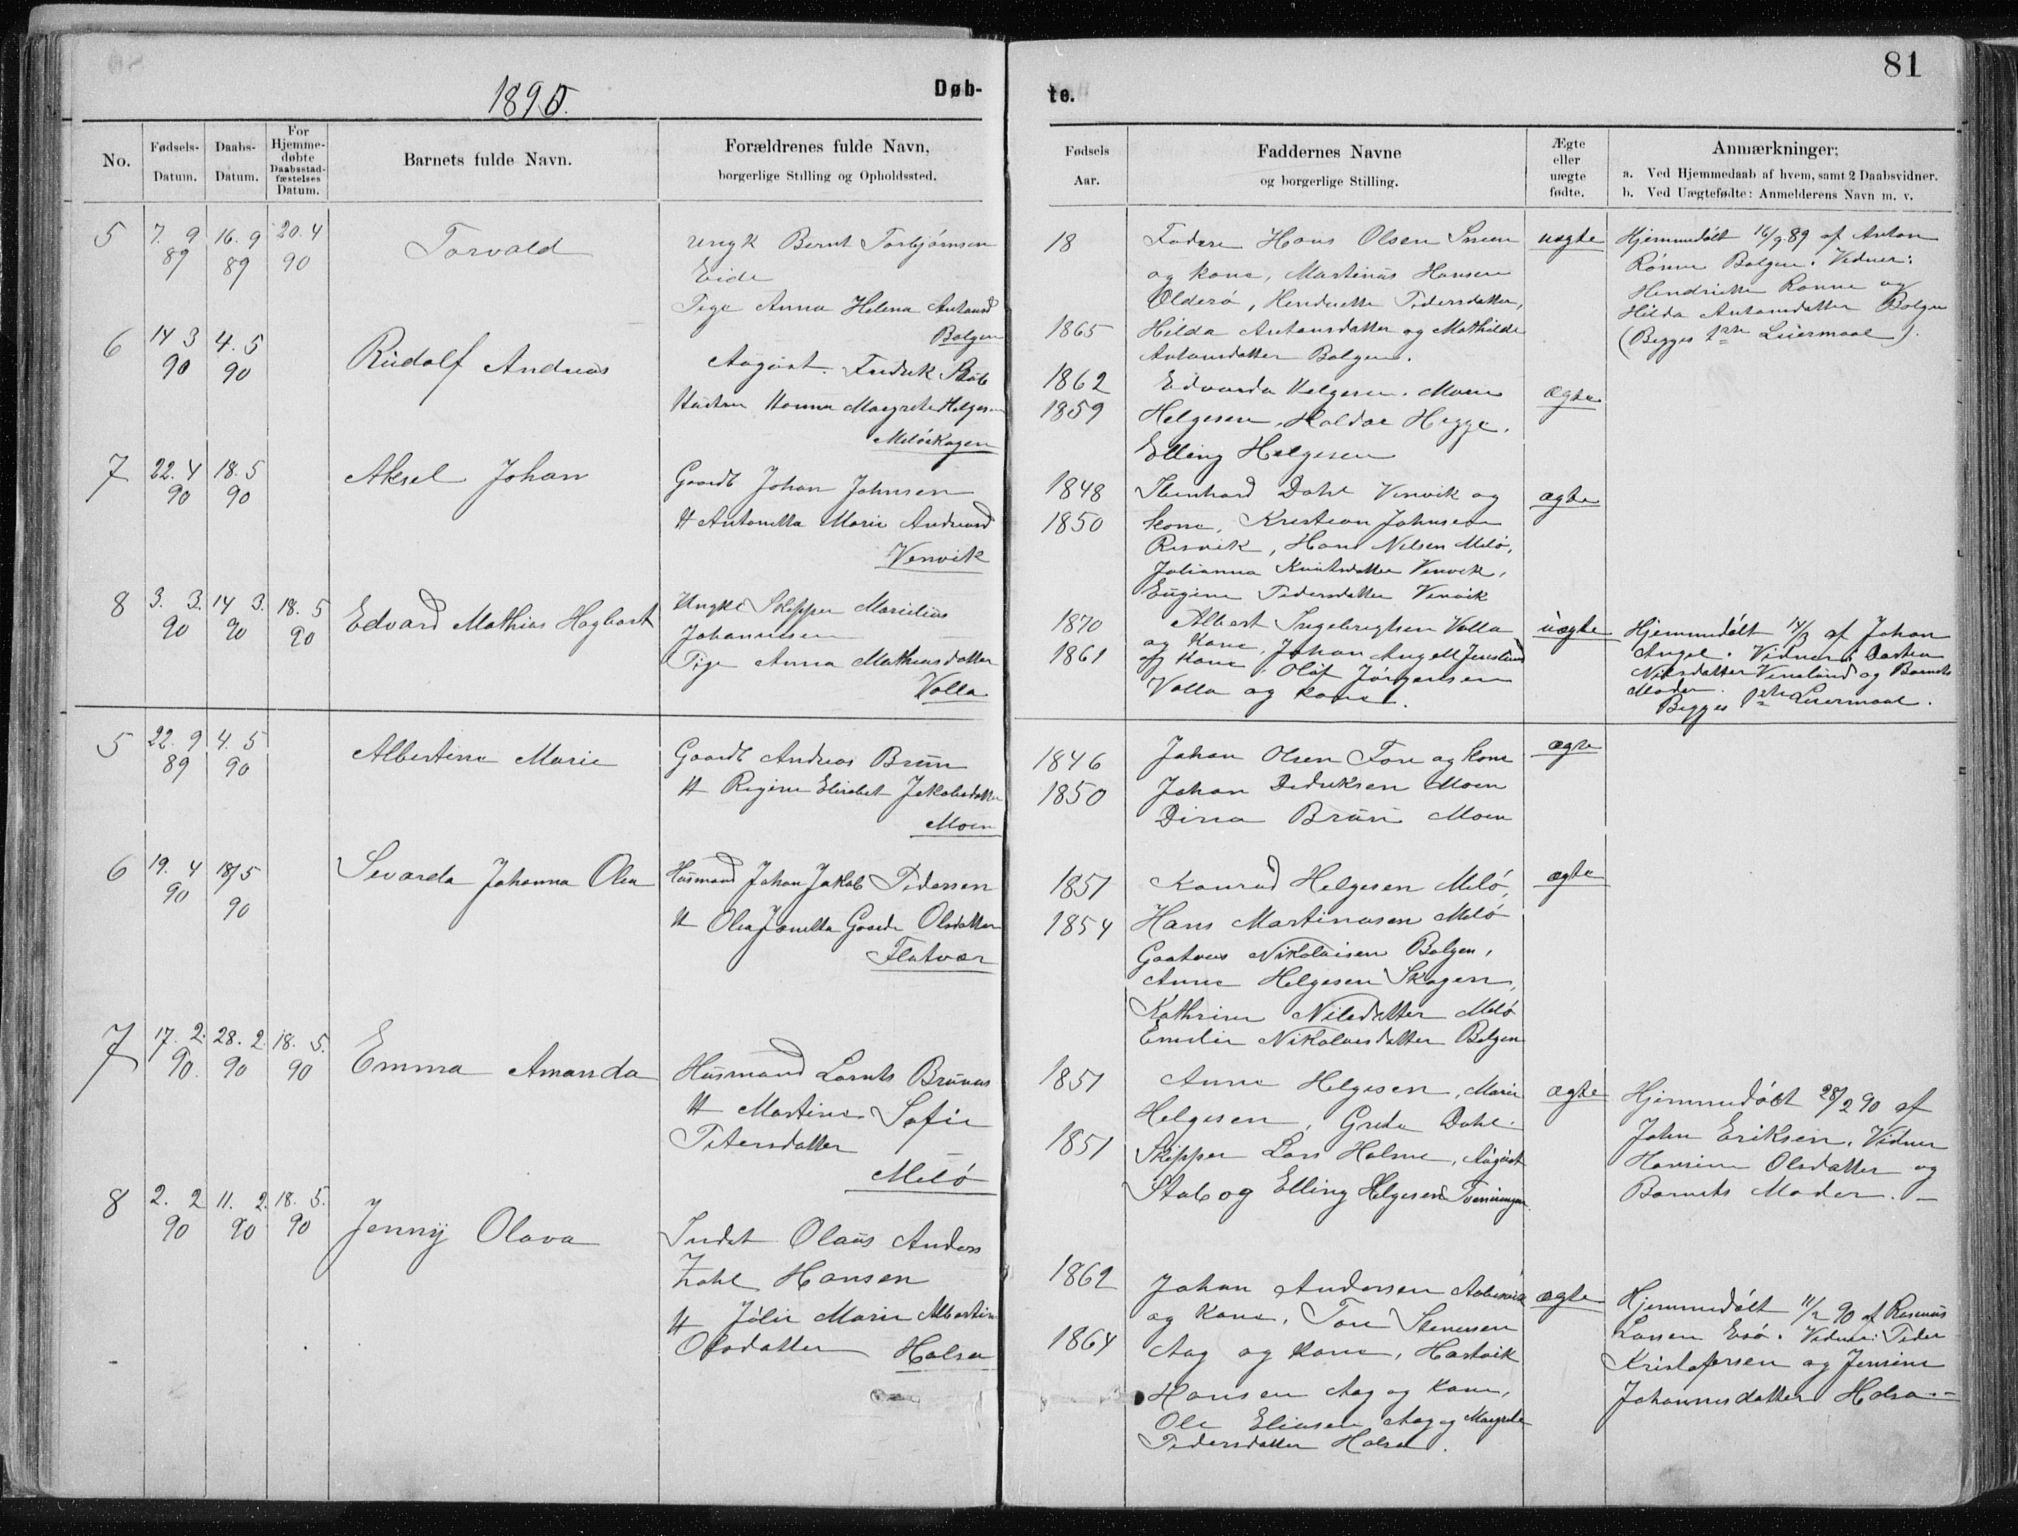 81
1890.
Døb-
te.
No.
Fødsels-
Datum.
Daabs-
Datum.
For
Hjemme-
døbte
Daabsstad-
fæstelses
Datum.
Barnets fulde Navn.
Forældrenes fulde Navn,
borgerlige Stilling og Opholdssted.
Fødsels
Aar.
Faddernes Navne
og borgerlige Stilling.
Ægte
eller
uægte
fødte.
Anmærkninger;
a. Ved Hjemmedaab af hvem, samt 2 Daabsvidner.
b. Ved Uægtefødte: Anmelderens Navn m. v.
5
7. 9
89
16. 9
89
20. 4
90
Torvald
Ungk Bernt Torbjørnsen
Eide
Pige Anna Helena Antonsd
Bolgen
18
1865
Hans Olsen
og kone, Martinus Hansen
Olderø, Hendrette Pedersdatter,
Hilda Antonsdatter og Mathilde
Antonsdatter Bolgen.
uægte
Hjemmedøbt 16/9 89 af Anton
Rønne Bolgen. Vidner:
Hendrette Rønne og
Hilda Antonsdatter Bolgen
(Begges 1ste Leiermaal).
6
14 3
90
4. 5
90
Rudolf Andreas
August Fredrik Stub
Hustru Hanna Margrete Helgesen
Meløskagen
1862
1859
Edvarda Helgesen. Maren
Helgesen, Haldor Hegge,
Elling Helgesen
Ægte
7
22. 4
90
18. 5
90
Aksel Johan
Gaardb Johan Johnsen
H Antonetta Marie Andreasd
Venvik
1848
1850
Steinhard Dahl Venvik og
kone, Kristian Johnsen
Risvik, Hans Nilsen Melø,
Julianna Knutsdatter Venvik,
Eugine Pedersdatter Venvik
ægte
8
3. 3.
90
14 3.
90
18. 5
90
Edvard Mathias Hagbart
Ungkl Skipper Marelius
Johannesen
Pige Anna Mathiasdatter
Valla
1870
1861
Albert Ingebrigtsen Valla
og kone, Johan Angell
og kone Olaf Jørgensen
Valla og kone.
uægte
Hjemmedøbt 14/3 af Johan
Angel. Vidner:
Nilsdatter og Barnets
Moder.
Begges 1ste Leiermaal.
5
22. 9
89
4. 5
90
Albertine Marie
Gaardb Andreas Bruun
H Regine Elisabet Jakobsdatter
Moen
1846
1850
Johan Olsen Fore og kone
Johan Dedriksen Moen
Dina Bruun Moen
ægte
6
19. 4
90
18/5
90
Sevarda Johanna Olea
Husmand Johan Jakob Pedersen
H Olea Jonetta Olsdatter
Flatvær
1851
1854
Konrad Helgesen Melø,
Hans Martinusen Melø
Nikolaisen Bolgen,
Anne Helgesen Skagen,
Kathrine Nilsdatter Melø
Emelie Nikolaisdatter Bolgen
ægte
7
17. 2.
90.
28. 2
90
18. 5.
90
Emma Amanda
Husmand Lornts Brunvas
H Martine Sofie
Petersdatter
Melø
1851
1851
Anne Helgesen, Maren
Helgesen, Greda Dahl.
Skipper Lars Holm, August
Stub og Elling Helgesen
ægte
Hjemmedøbt 28/2 90 af
John Eriksen. Vidner
Hansine Olsdatter og
Barnets Moder. —
8
2. 2
90
11. 2.
90
18. 5.
90
Jenny Olava
Indst Olaus Anders
Zahl Hansen
H Julie Marie Albertine
Olsdatter Halsa
1862
1864
Johan Andersen
og kone, Tore Stensen
Aag og kone, Hartvik
Hansen Aag og kone,
Ole Eliasen Aag og Margrete
Pedersdatter Halsa.
ægte
Hjemmedøbt 11/2 90 af Rasmus
Larsen Esø. Vidner: Peder
Kristofersen og Jensine
Johannesdatter Halsa. —